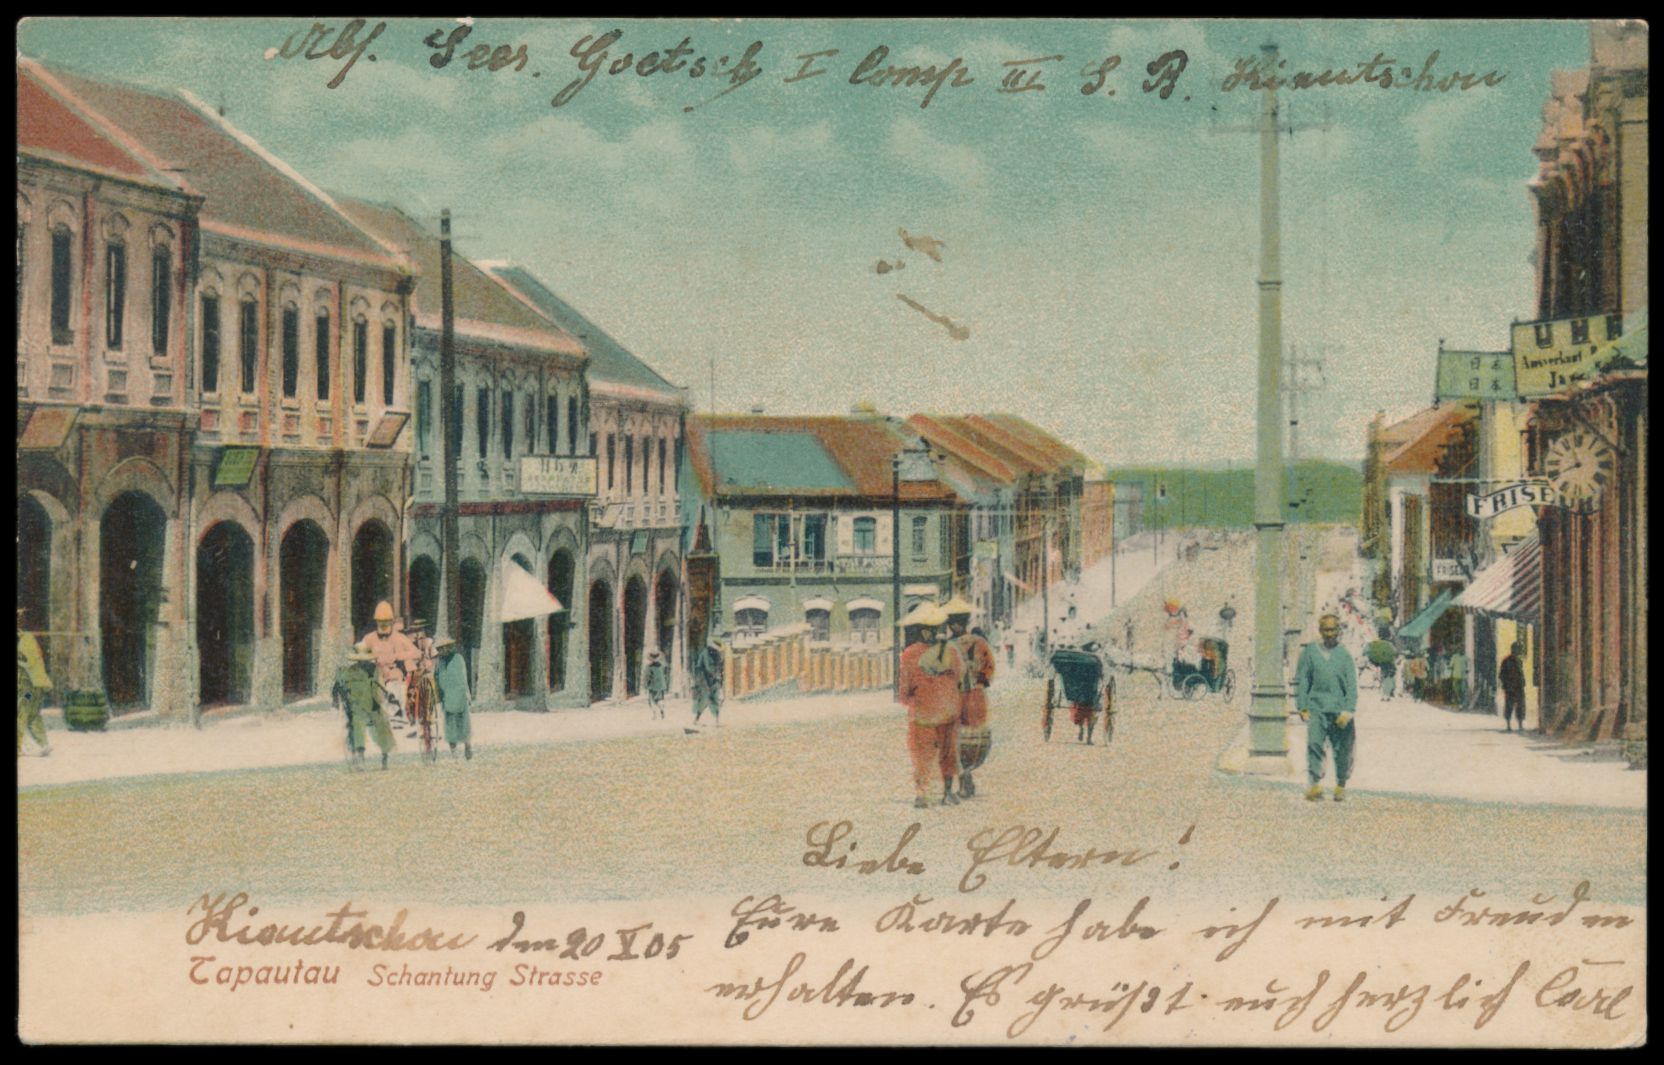 Abs. Sees. Goetsch I Comp III S. B. Kiautschou
UHR
Ausverkauf
日本
日本
FRISE
Liebe Eltern!
Kiautschou den 20 V 05
Eure Karte habe ich mit Freuden
erhalten. Es grüßt euch herzlich Carl
Tapautau Schantung Strasse